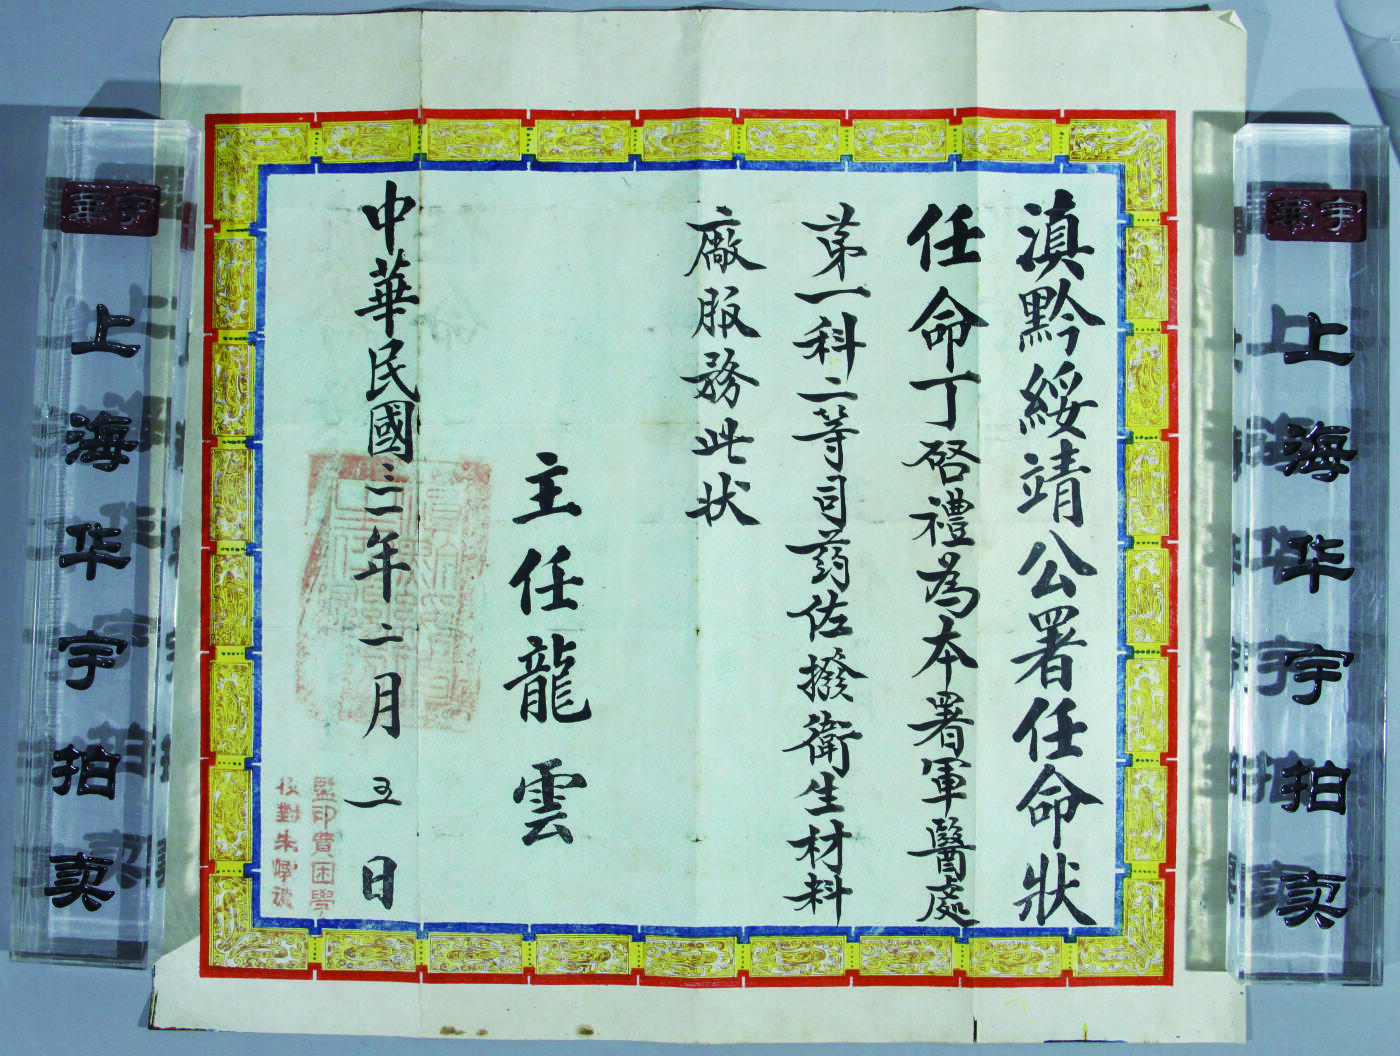 滇黔綏靖公署任命狀
任命丁啓禮為本署軍醫處
苐一科二等司药佐撥衛生材料
廠服務此状
主任龍雲
中華民國三二年二月五日
監印費困學
校對朱
華宇
上海华宇拍卖
華宇
上海华宇拍卖